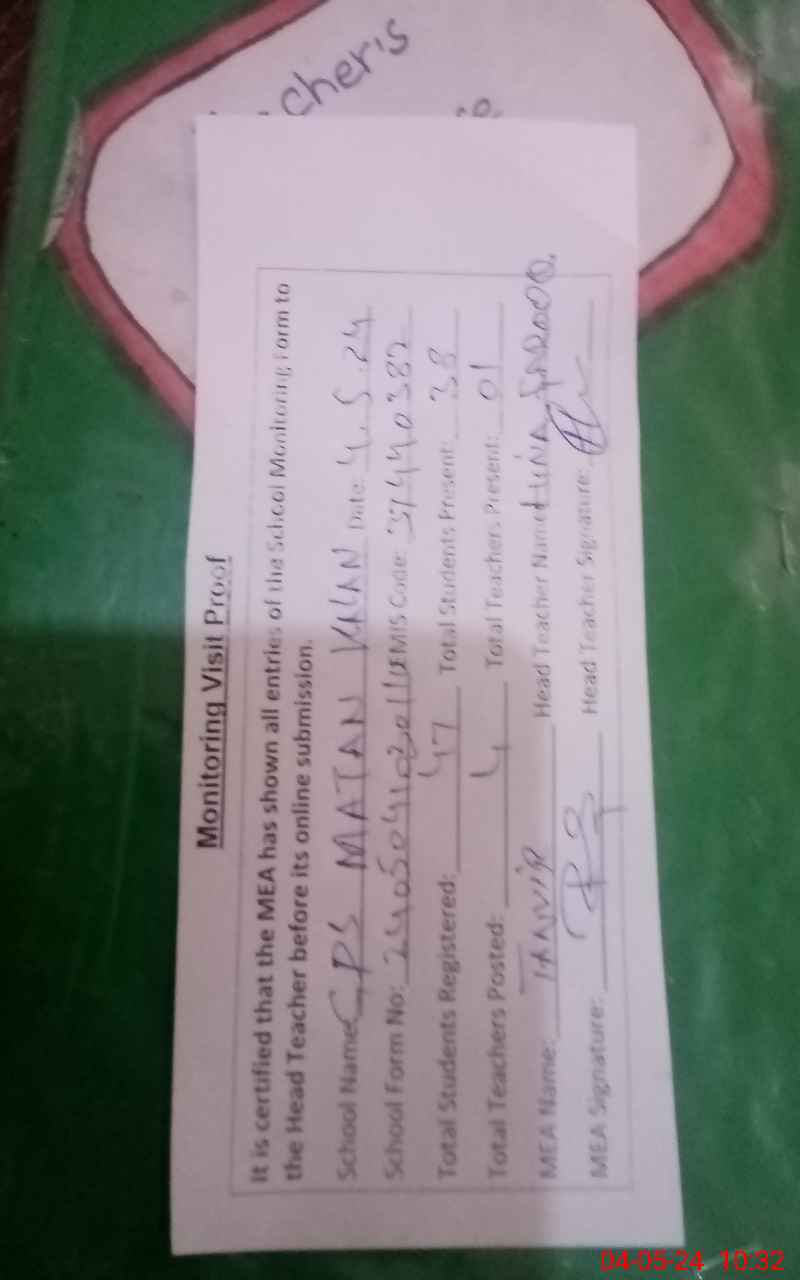 cher's
Monitoring Visit Proof
It is certified that the MEA has shown all entries of the School Monitoring Form to
the Head Teacher before its online submission.
School Name: GPS MATAN KALAN Date: 4.5.24
School Form No: EMIS Code: 37440382
Total Students Registered: 47 Total Students Present: 38
Total Teachers Posted: 4 Total Teachers Present: 01
MEA Name: TANVIR Head Teacher Name: HINA FAROOQ.
MEA Signature: Head Teacher Signature:
04-05-24 10:32